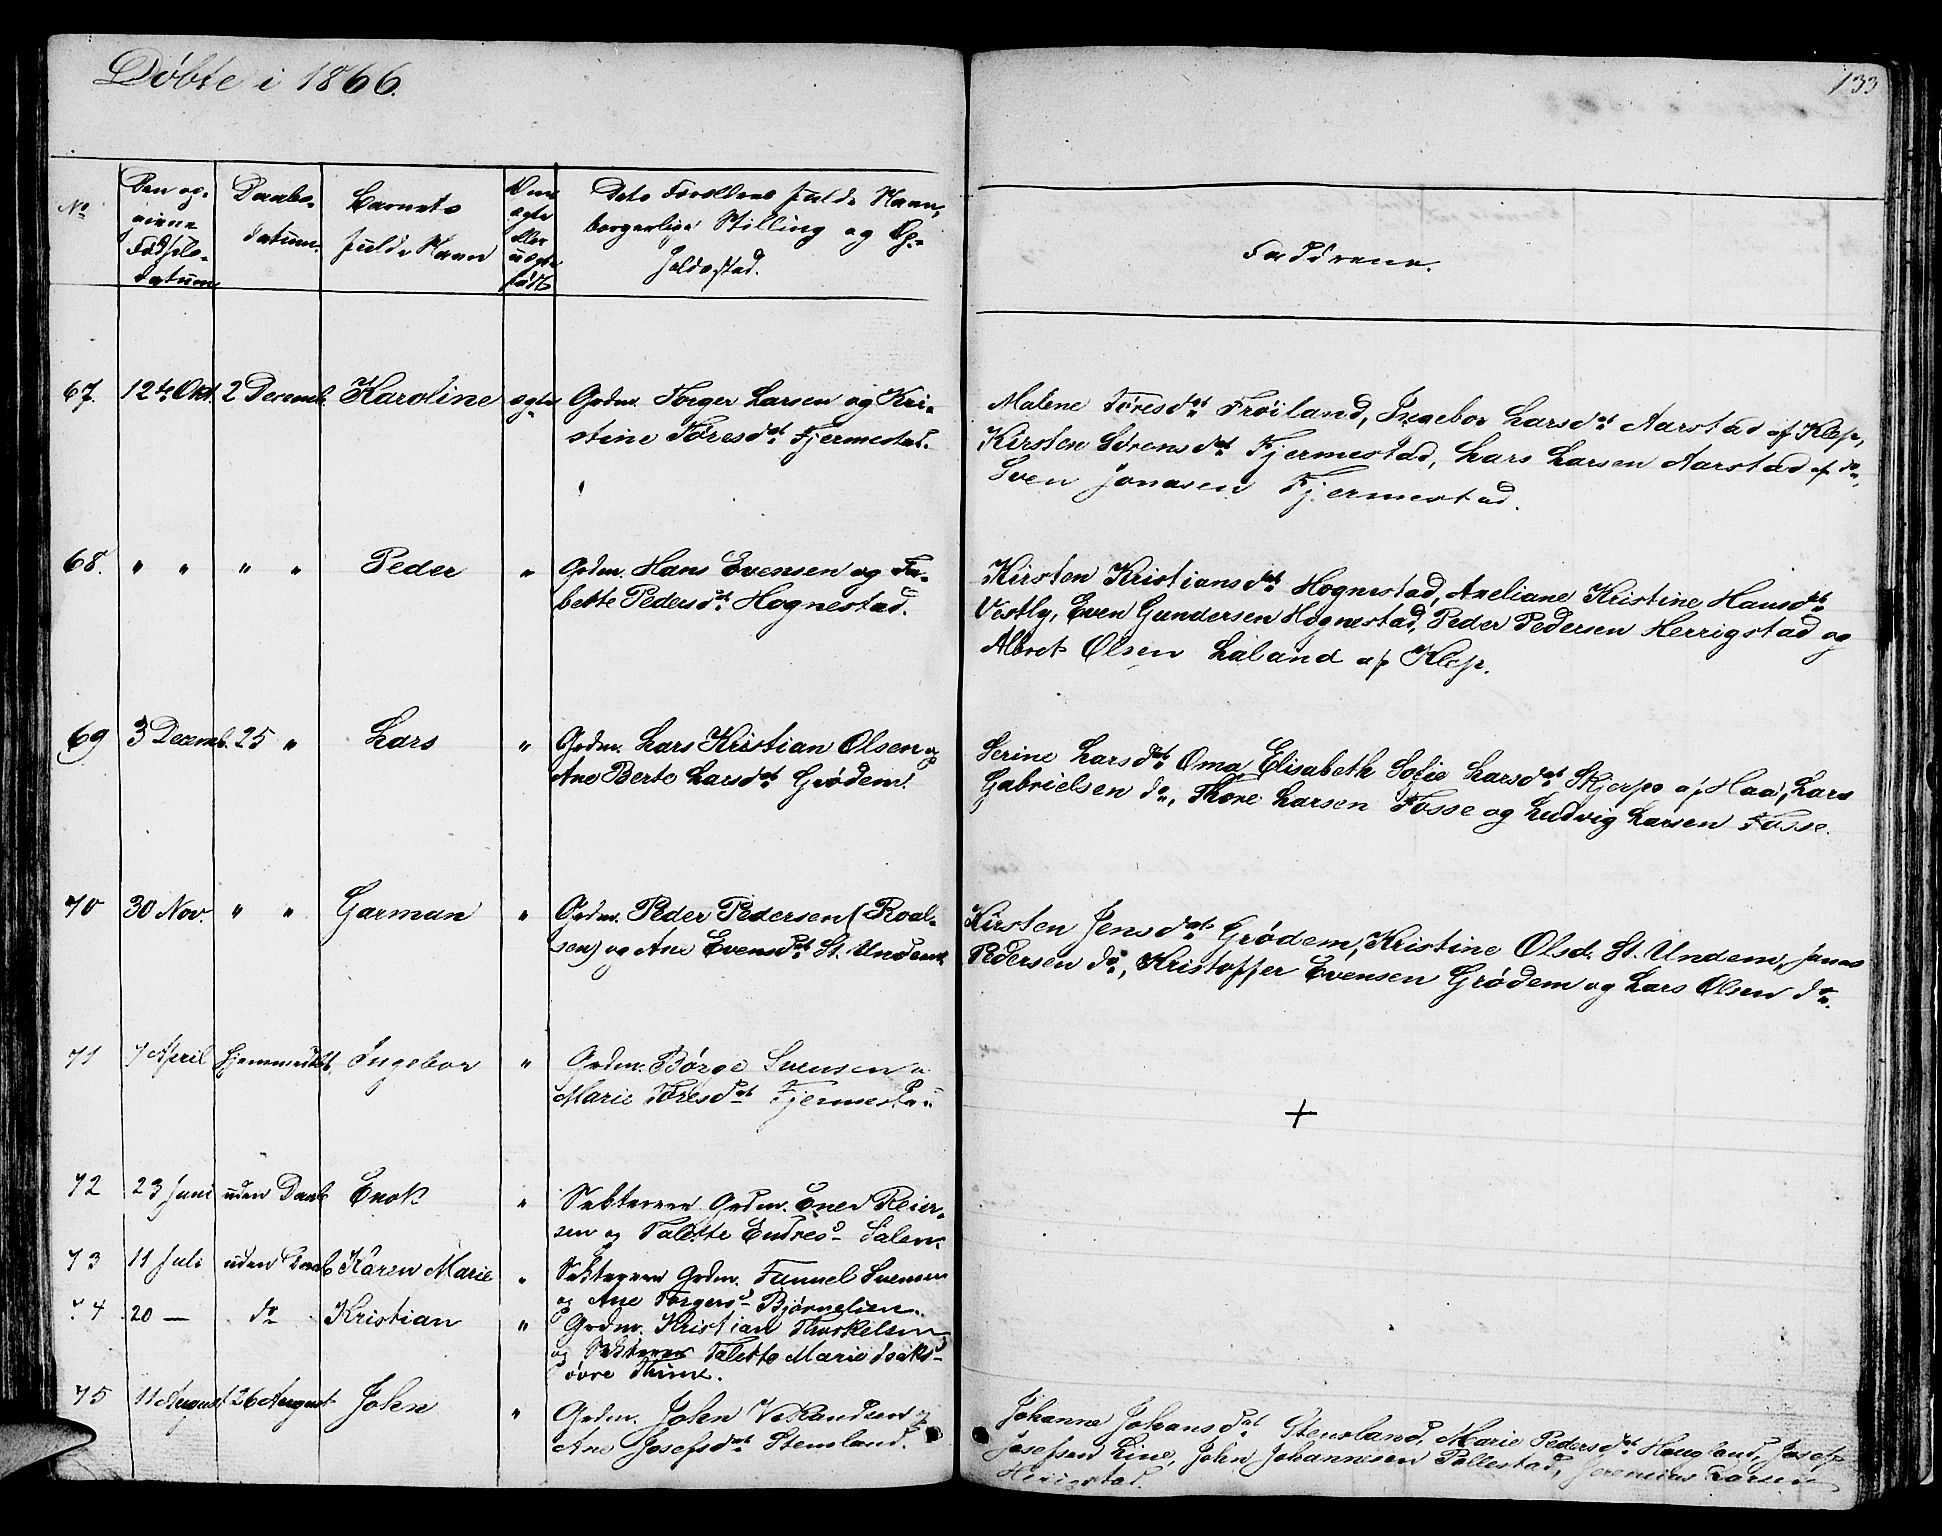 Døbte i 1866.
133
No
Den og-
Fødsels-
datum
Daabs-
datum.
Barnets
fulde Navn
ægte
eller
uægte
født
Dets Forældres fulde Navn,
borgerlige Stilling og Op-
holdssted.
Faddrene.
67. 12te Okt. 2 Decemb. Karoline ægte Grdm. Torger Larsen og Kri-
stine Toresdat. Fjermestad.
Malene Toresdat. Frøiland, Ingebor Larsdat. Aarstad af Klep,
Kirsten Sørensdat. Fjermestad, Lars Larsen Aarstad af do,
Sven Jonasen Fjermestad.
68. " " " " Peder " Grdm. Hans Evensen og
bette Pedersdat. Hognestad.
Kirsten Kristiansdat. Hognestad, Aneliane Kristine Hansdat.
Vestly, Even Gundersen Hognestad, Peder Pedersen Herrigstad og
Albret Olsen Laland af Klep.
69 3 Decemb. 25 " Lars " Grdm. Lars Kristian Olsen og
Ane Berte Larsdat. Grødem.
Serine Larsdat. Oma, Elisabeth Sofie Larsdat. Skjerpe af Haa, Lars
Gabrielsen do, Thore Larsen Fosse og Ludvig Larsen Fosse.
70 30 Nov. " " Garman " Grdm. Peder Pedersen (Roal-
sen) og Ane Evensdat. St. Undem
Kirsten Jensdat. Grødem, Kristine Olsd. St. Undem, Jonas
Pedersen do, Kristoffer Evensen Grødem og Lars Olsen do.
71 7 April Hjemmedøbt. Ingebor " Grdm. Børge Svensen o
Marie Toresdat Fjermestad
+
72 23 Juni uden Daab Enok " Sekterere Grdm. Ener Reier-
sen og Talette Endresd Salen.
73 11 Juli uden Daab Karen Marie " Sekterere Grdm. Fannuel Svensen
og Ane Torgersd Bjørnelien.
74 20 — do Kristian " Grdm. Kristian Thorkelsen
og Sekterer Talette Marie Isaksd
øvre Thime.
75 11 August 26 August John " Grdm. John Vekandsen og
Ane Josefsdat. Stensland.
Johanne Johansdat. Stensland, Marie Pedersdat. Haugland, Josef
Josefsen Line, John Johannesen Pollestad, Jeremias Larsen
Herigstad.